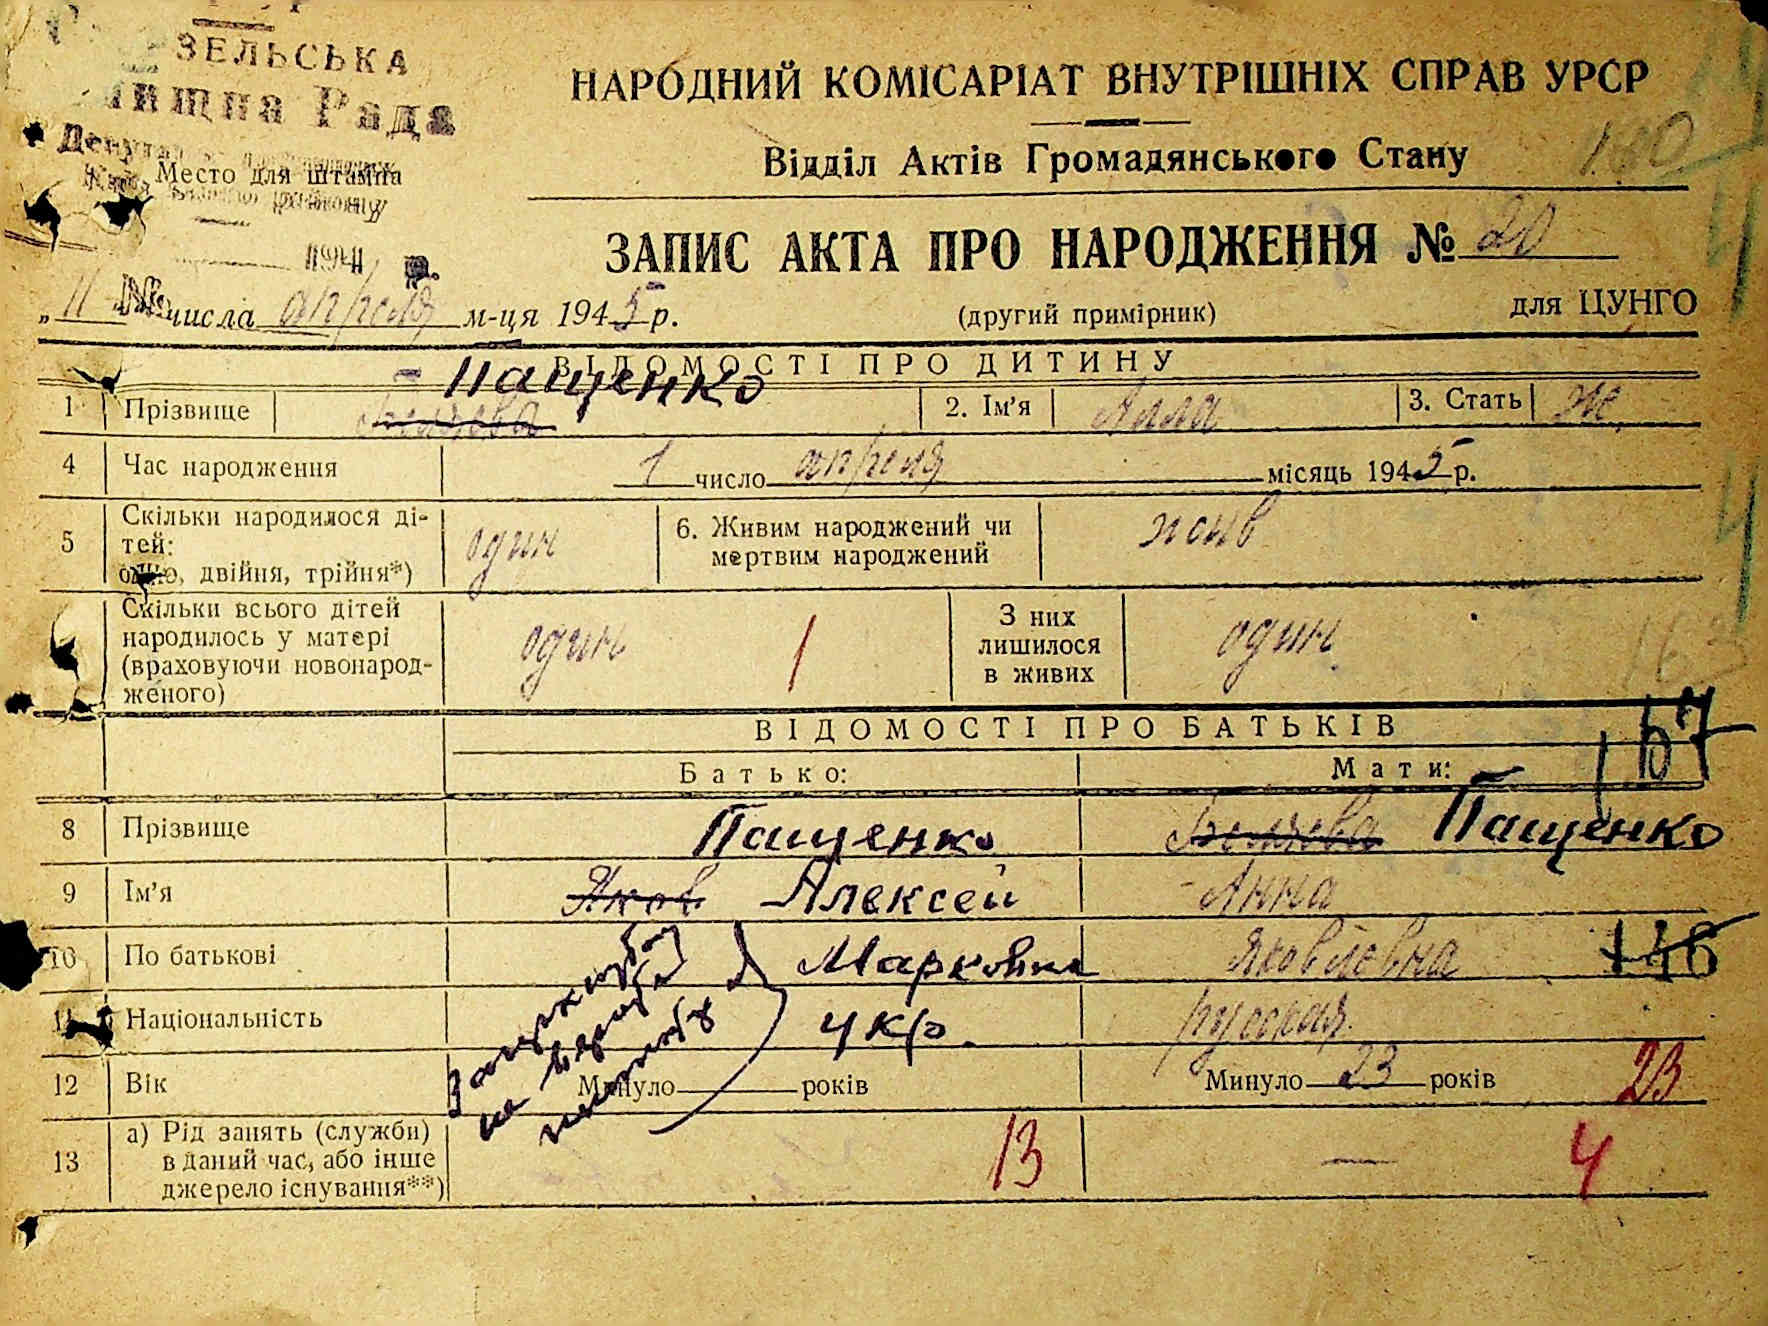 ЗЕЛЬСЬКА
Рада
Место для штампа
1941 р.
НАРОДНИЙ КОМІСАРІАТ ВНУТРІШНІХ СПРАВ УРСР
Відділ Актів Громадянського Стану
180
ЗАПИС АКТА ПРО НАРОДЖЕННЯ № 20
„11 числа апреля м-ця 1945 р.
(другий примірник)
для ЦУНГО
ВІДОМОСТІ ПРО ДИТИНУ
Пащенко
1 Прізвище 2. Ім'я Алла 3. Стать же
4 Час народження 1 число апреля місяць 1945 р.
5 Скільки народилося ді-
тей:
одно, двійня, трійня*)
один
6. Живим народжений чи
мертвим народжений
жив
Скільки всього дітей
народилось у матері
(враховуючи новонарод-
женого)
один 1
З них
лишилося
в живих
один
163
ВІДОМОСТІ ПРО БАТЬКІВ
167
Батько: Мати:
8 Прізвище Пащенко Пащенко
9 Ім'я Яков Алексей Анна
10 По батькові Маркович Яковлевна 146
11 Національність укр. русская
12 Вік Минуло років Минуло 23 років 23
13 а) Рід занять (служби)
в даний час, або інше
джерело існування**)
13 — 4